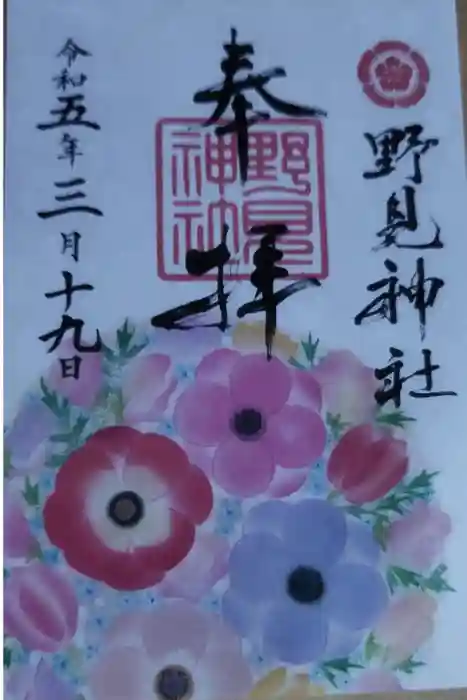 野見神社
奉拝
野見神社
令和五年三月十九日